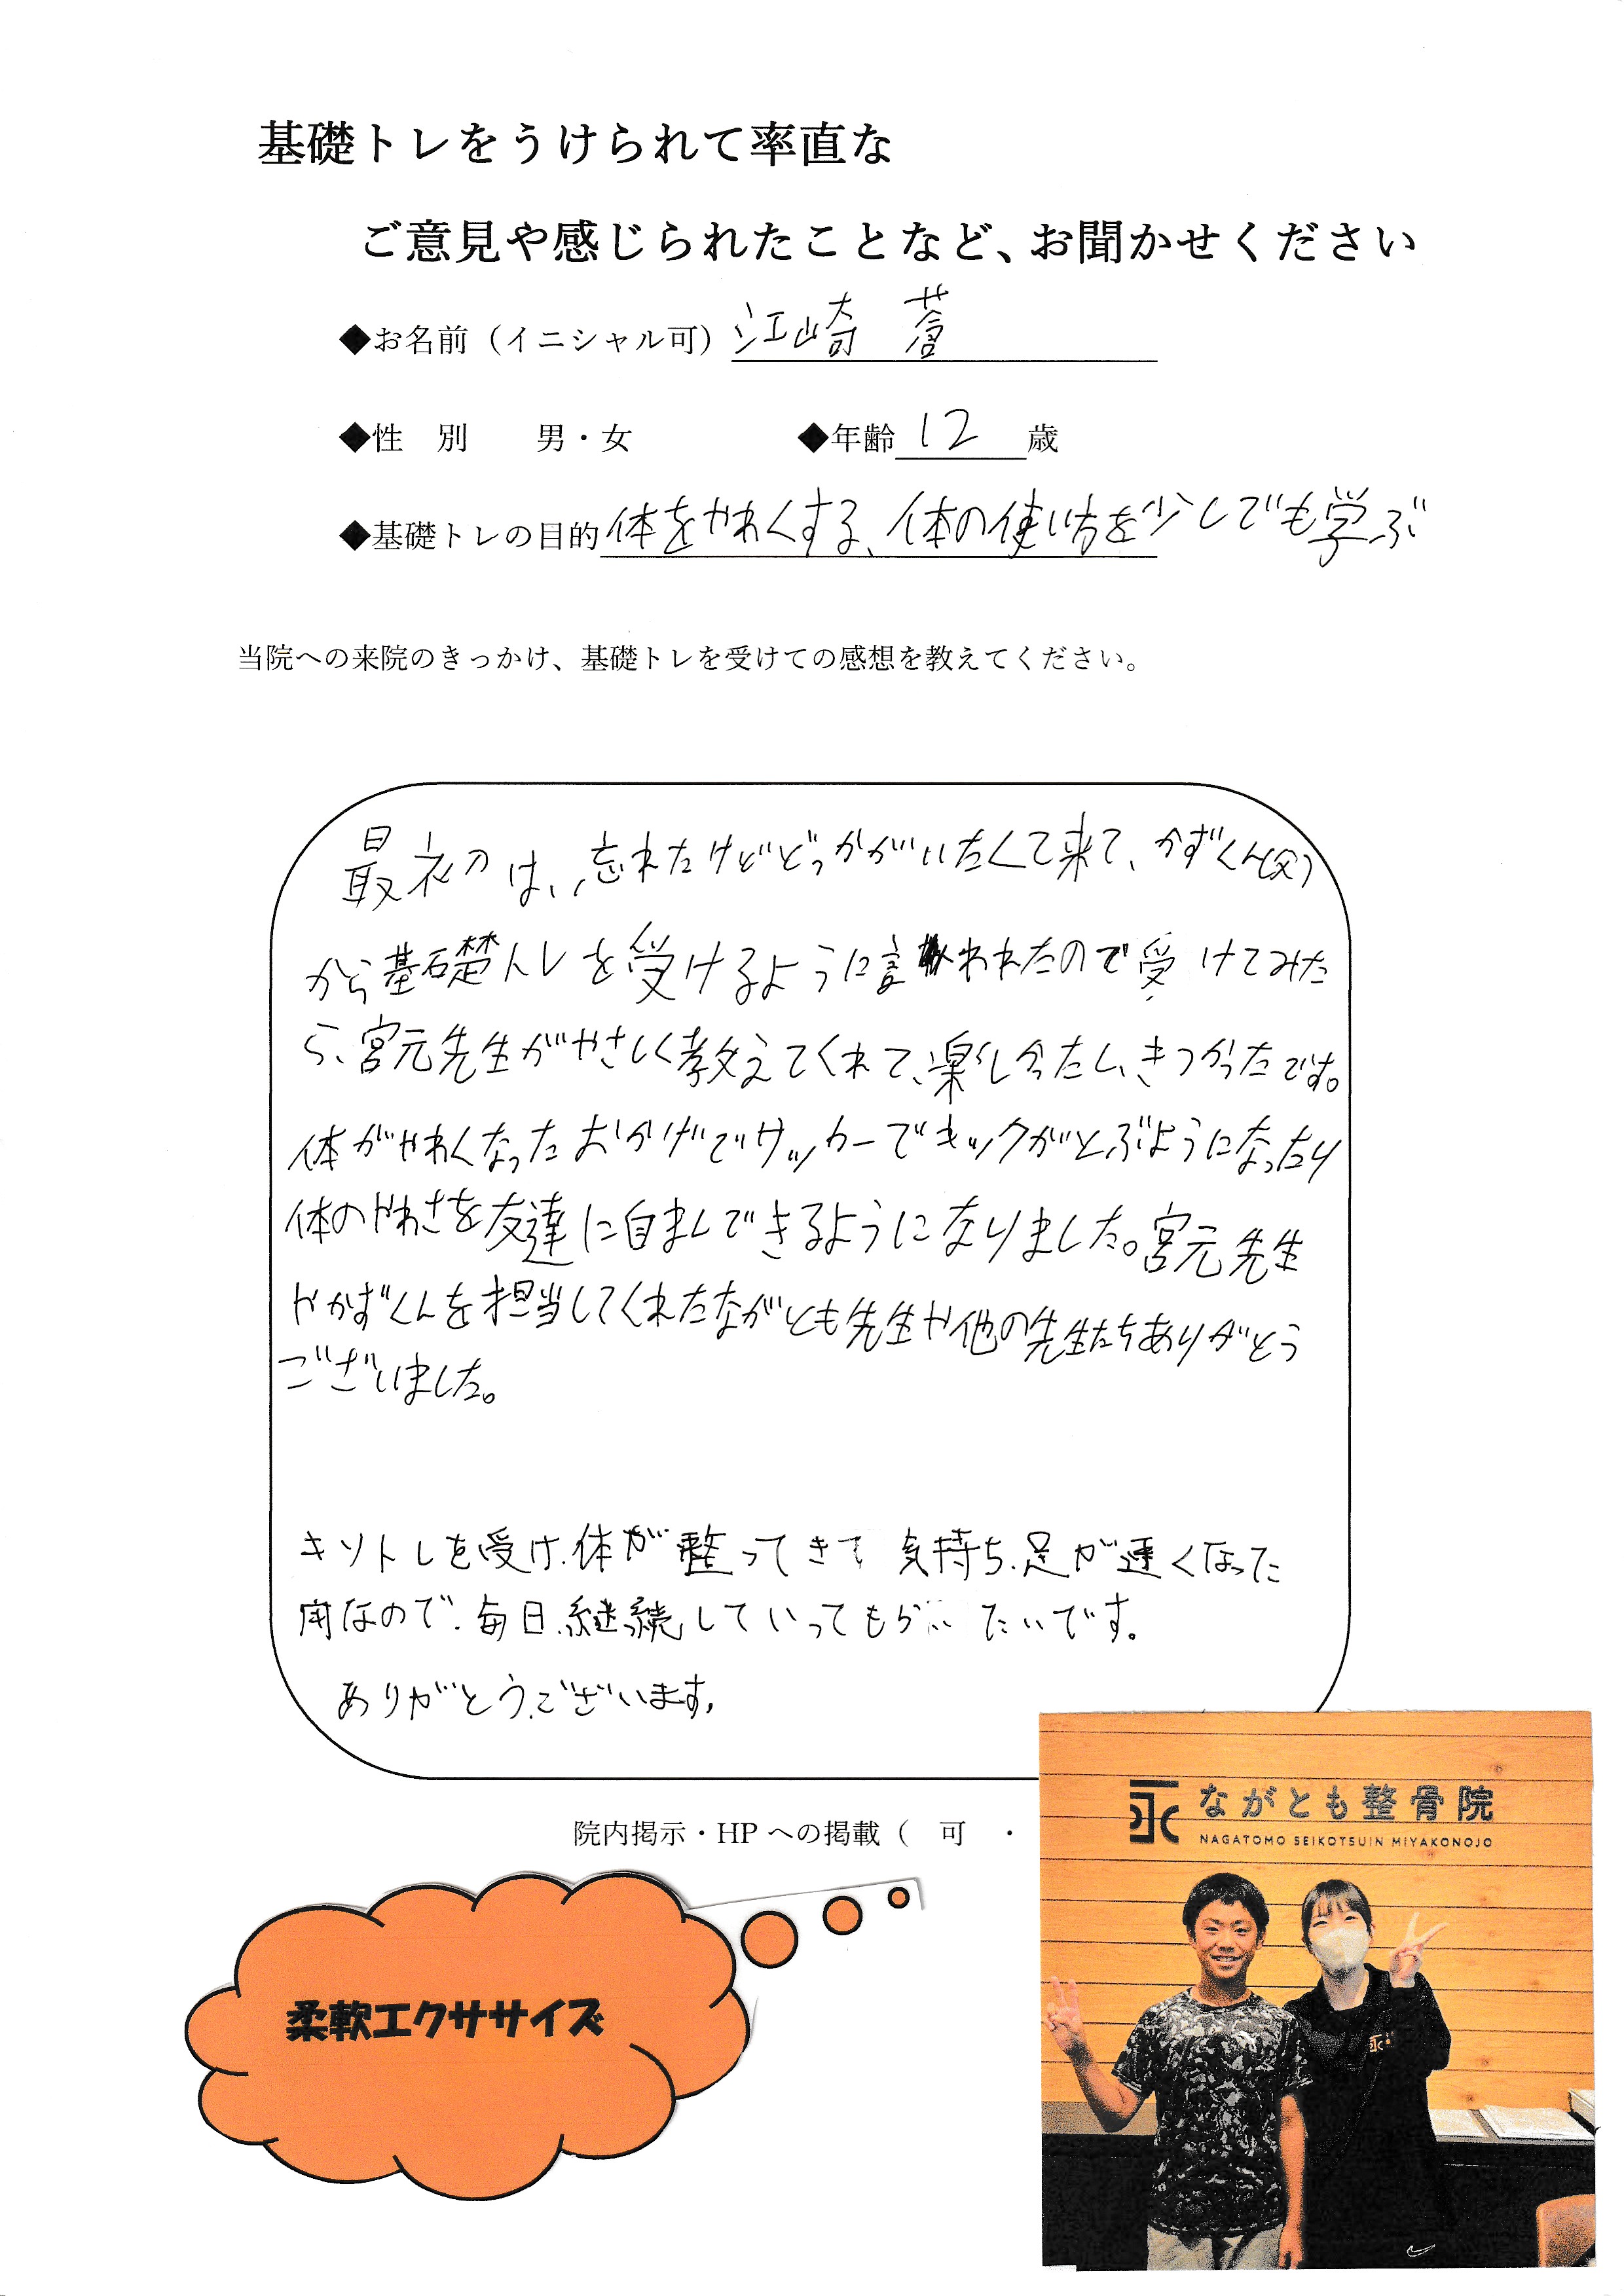 基礎トレをうけられて率直な
ご意見や感じられたことなど、お聞かせください
◆お名前（イニシャル可） 江崎 蒼
◆性 別 男・女 ◆年齢 12 歳
◆基礎トレの目的 体をやわくする、体の使い方を少しでも学ぶ
当院への来院のきっかけ、基礎トレを受けての感想を教えてください。
最初は、忘れたけどどっかがいたくて来て、かずくん(父)
から基礎トレを受けるように言われたので受けてみた
ら、宮元先生がやさしく教えてくれて、楽しかったし、きつかったです。
体がやわくなったおかげでサッカーでキックがとぶようになったり
体のやわさを友達に自まんできるようになりました。宮元先生
やかずくんを担当してくれたながとも先生や他の先生たちありがとう
ございました。
キソトレを受け、体が整ってきて 気持ち、足が速くなった
用なので、毎日、継続していってもらいたいです。
ありがとうございます。
院内掲示・HPへの掲載（ 可 ・
柔軟エクササイズ
永 ながとも整骨院
NAGATOMO SEIKOTSUIN MIYAKONOJO